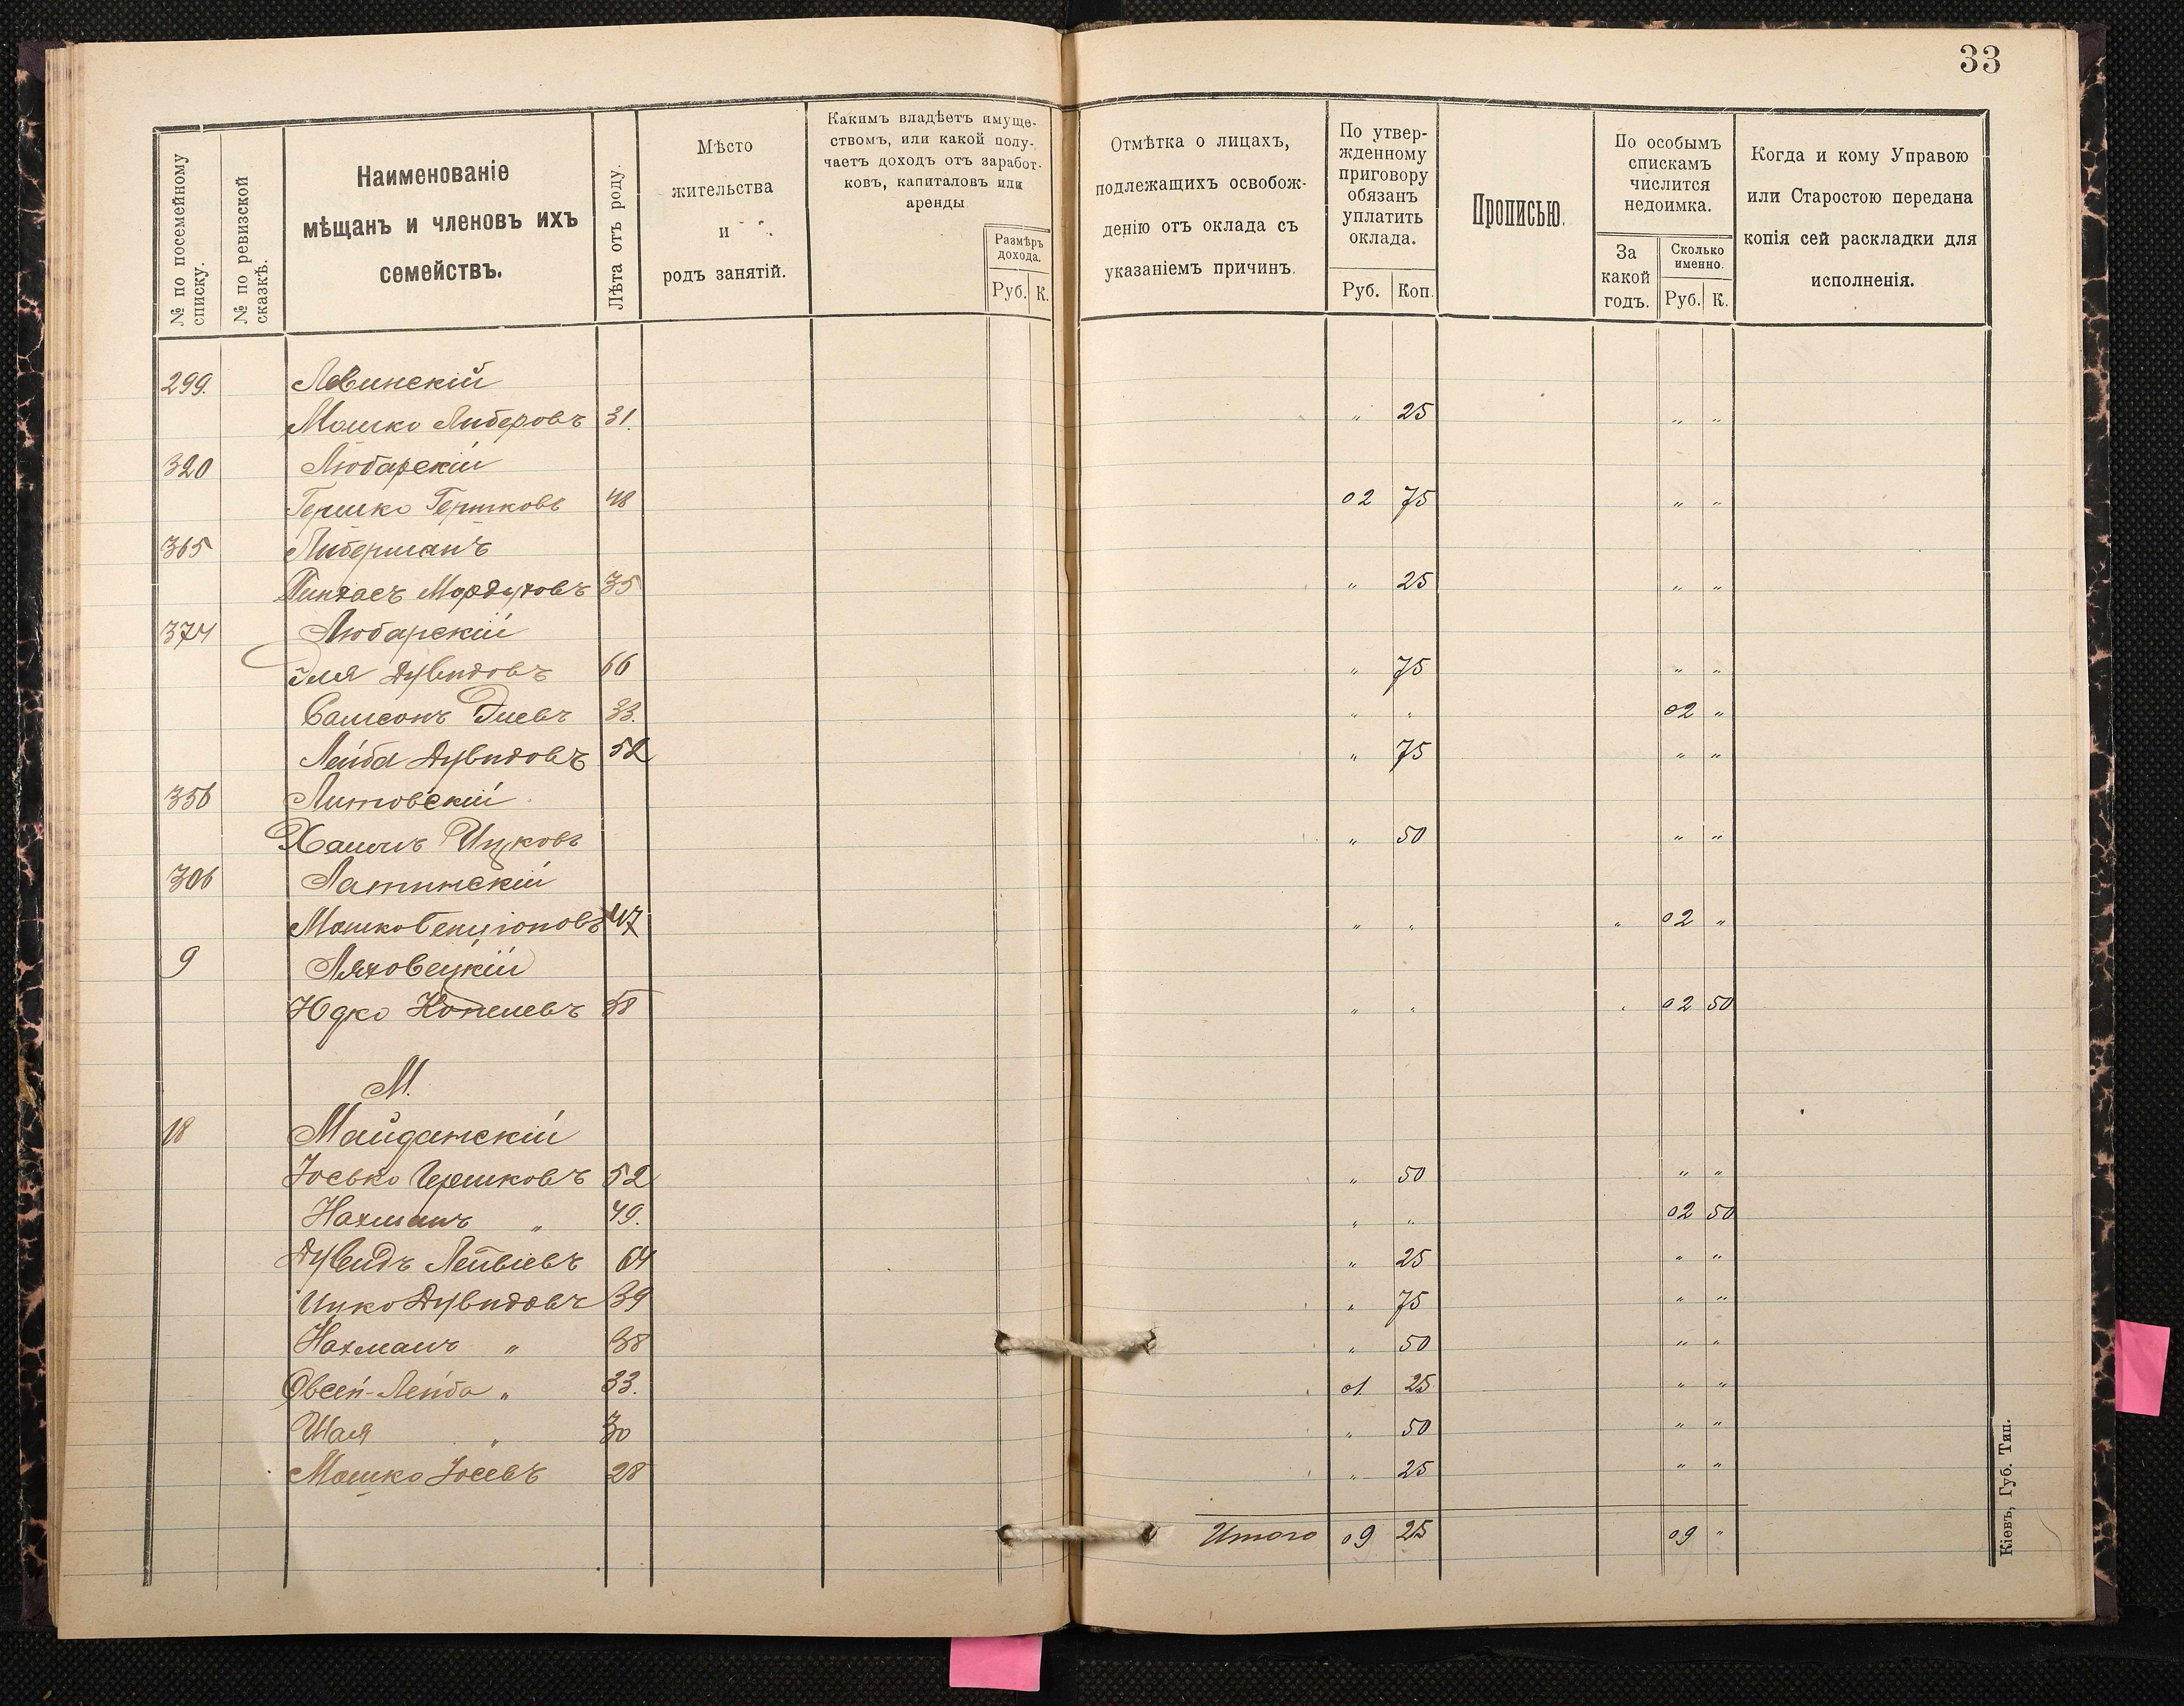 33
№ по посемейному списку.
№ по ревизской сказкѣ.
Наименованіе
мѣщанъ и членовъ ихъ
семействъ.
Лѣта отъ роду.
Мѣсто
жительства
и
родъ занятій.
Какимъ владѣетъ имуще-
ствомъ, или какой полу-
чаетъ доходъ отъ заработ-
ковъ, капиталовъ или
аренды
Размѣръ
дохода.
Руб. К.
Отмѣтка о лицахъ,
подлежащихъ освобож-
денію отъ оклада съ
указаніемъ причинъ.
По утвер-
жденному
приговору
обязанъ
уплатить
оклада.
Руб. Коп.
Прописью.
По особымъ
спискамъ
числится
недоимка.
За
какой
годъ.
Сколько
именно.
Руб. К.
Когда и кому Управою
или Старостою передана
копія сей раскладки для
исполненія.
299. Левинскій
Мошко Либеровъ 31. " 25 " "
320 Любарскій
Гершко Гершковъ 48 02 75 " "
365 Либерманъ
Пинхасъ Мордуховъ 35 " 25 " "
374 Любарскій
Эля Дувидовъ 66 " 75 " "
Самсонъ Элевъ 33. " " 02 "
Лейба Дувидовъ 52 " 75 " "
356 Литовскій
Хаимъ Ицковъ " 50 " "
306 Латинскій
Мошко Бенционовъ 47 " " " 02 "
9 Ляховецкій
Юдко Копелевъ 58 " " " 02 50
М.
18 Майданскій
Іосько Гершковъ 52 " 50 " "
Нахманъ " 49. " " 02 50
Дувидъ Лейбіевъ 64 " 25 " "
Ицко Дувидовъ 39 " 75 " "
Нахманъ " 38 " 50 " "
Овсей-Лейба " 33. 01. 25 " "
Шая " 30 " 50 " "
Мошко Іосевъ 28 " 25 " "
Итого 09 25 09 "
Кіевъ, Губ. Тип.